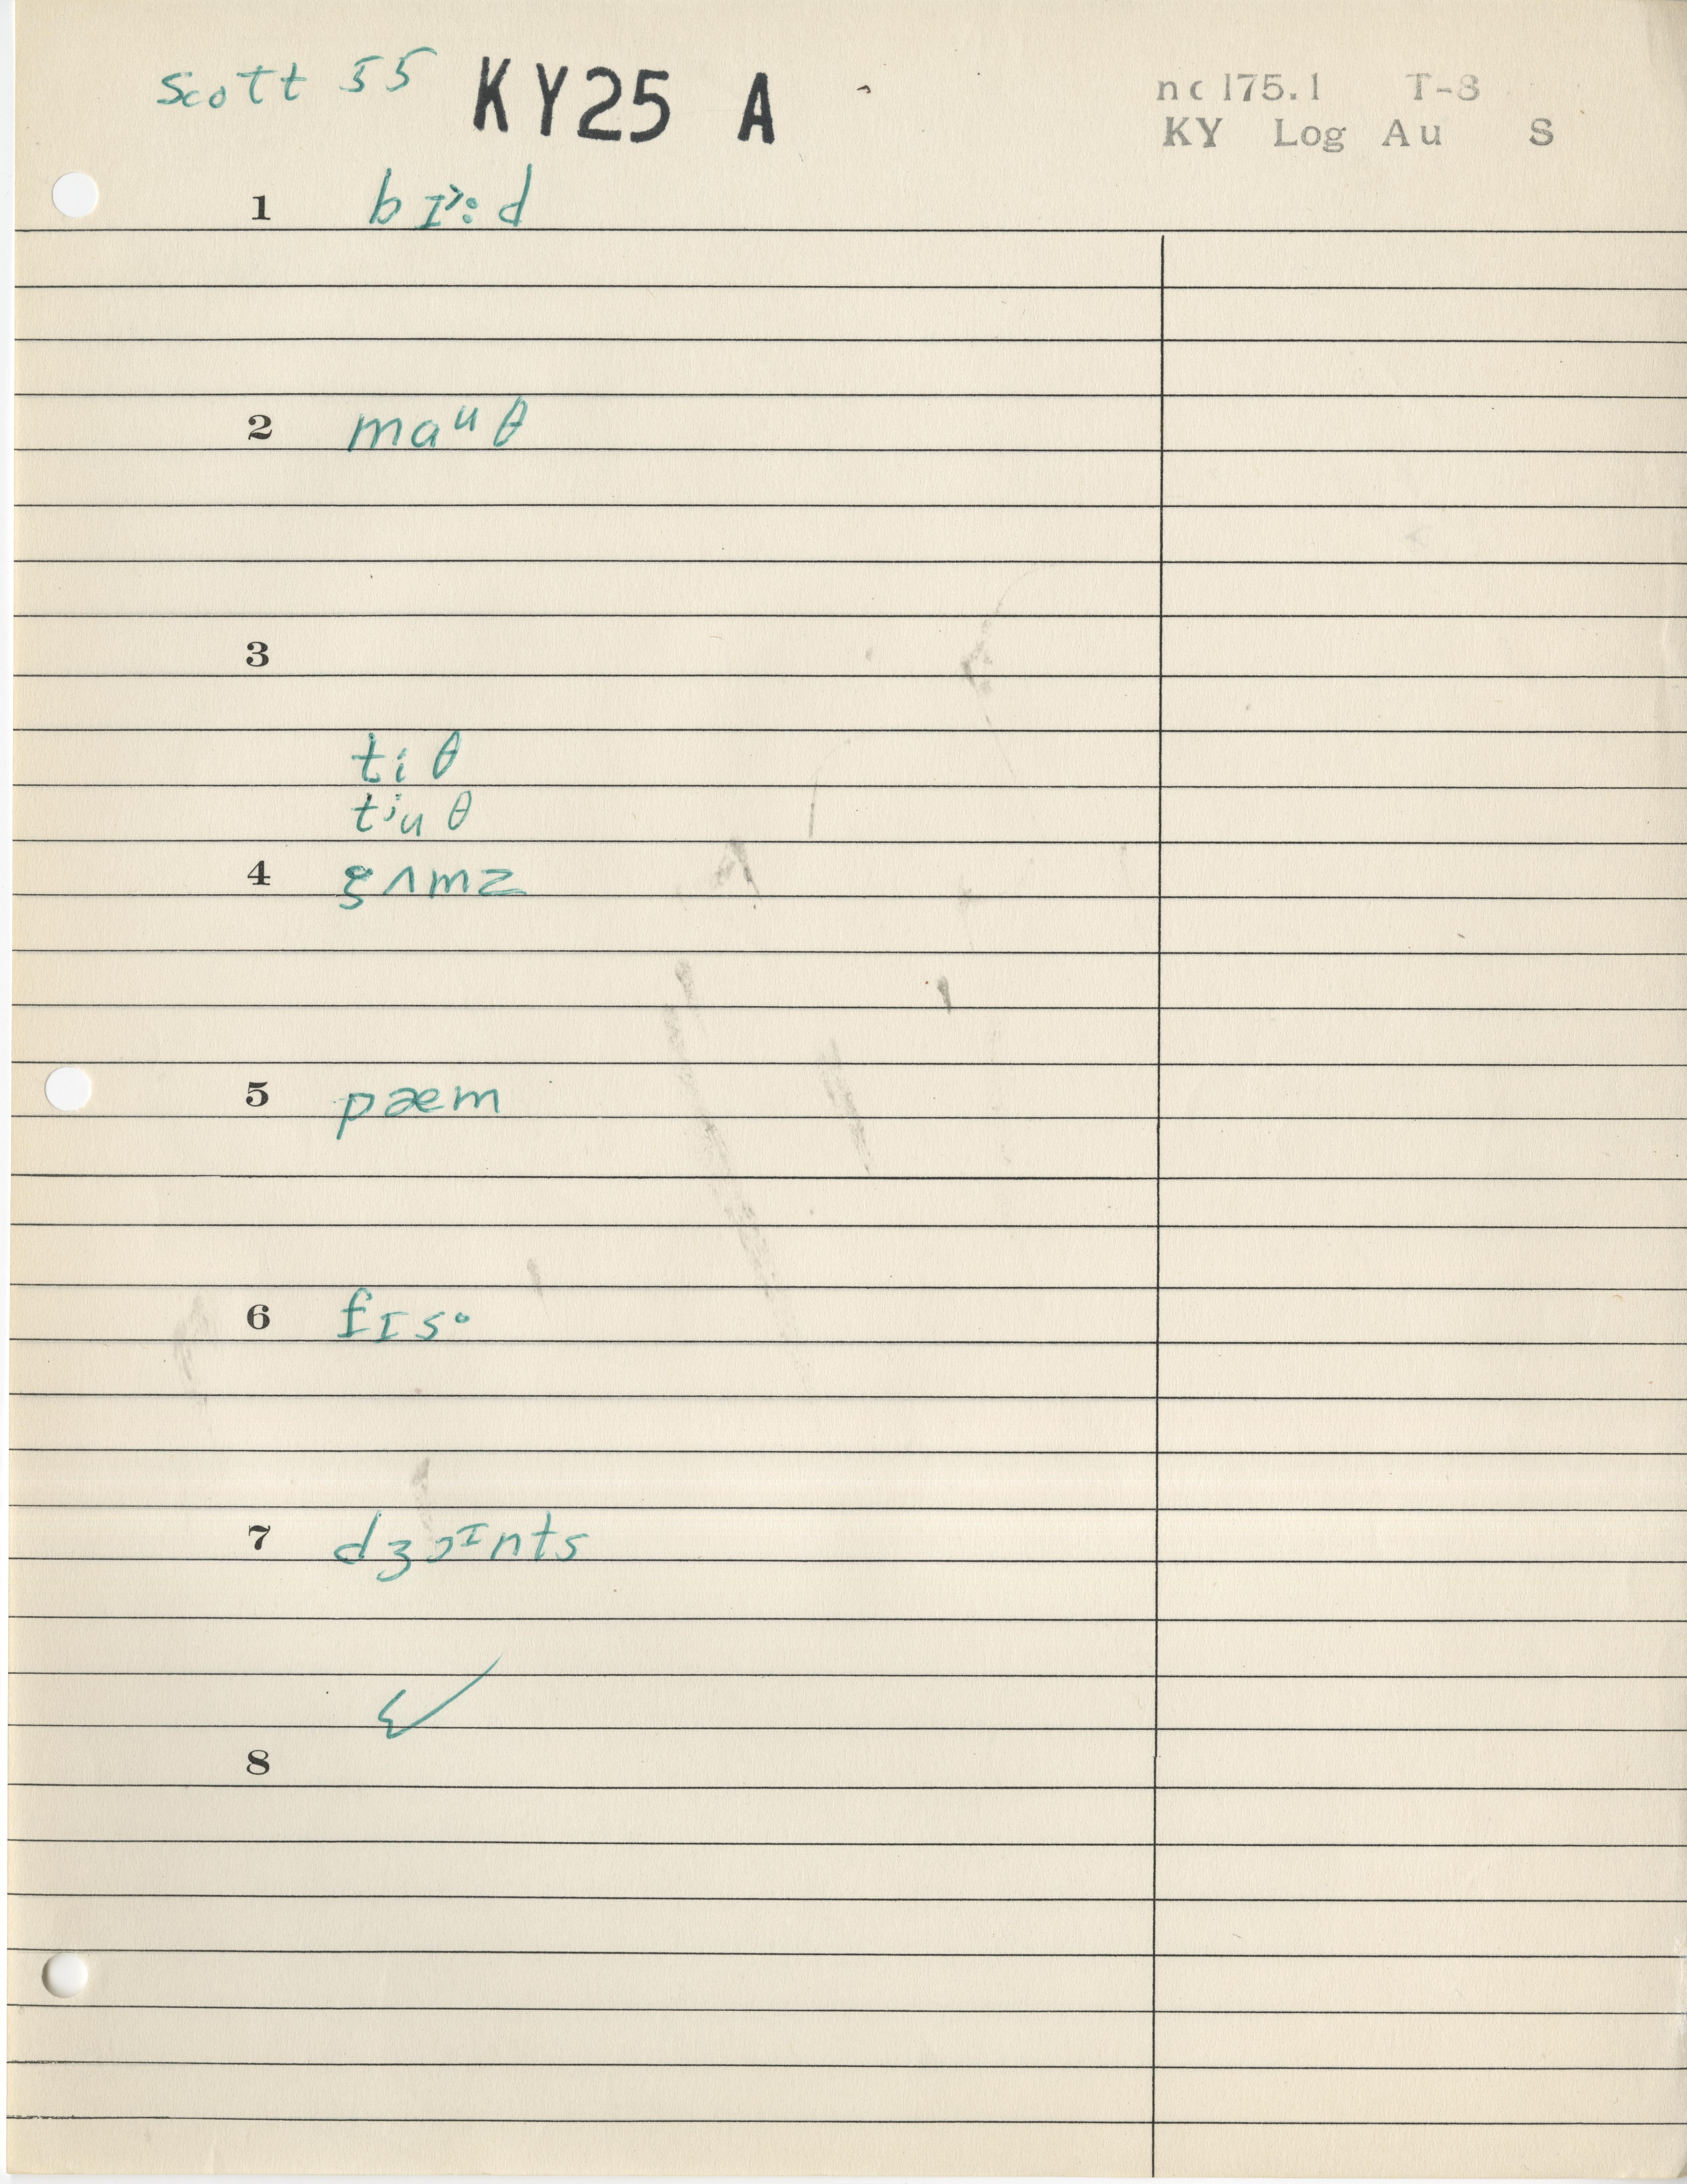 Scott 55 KY25 A
nc 175.1 T-8
KY Log Au S
1 bɪ˞:d
2 maᵘθ
3
tiθ
tⁱuθ
4 gʌmz
5 pæem
6 fɪs°
7 dʒɔᶦnts
✓
8